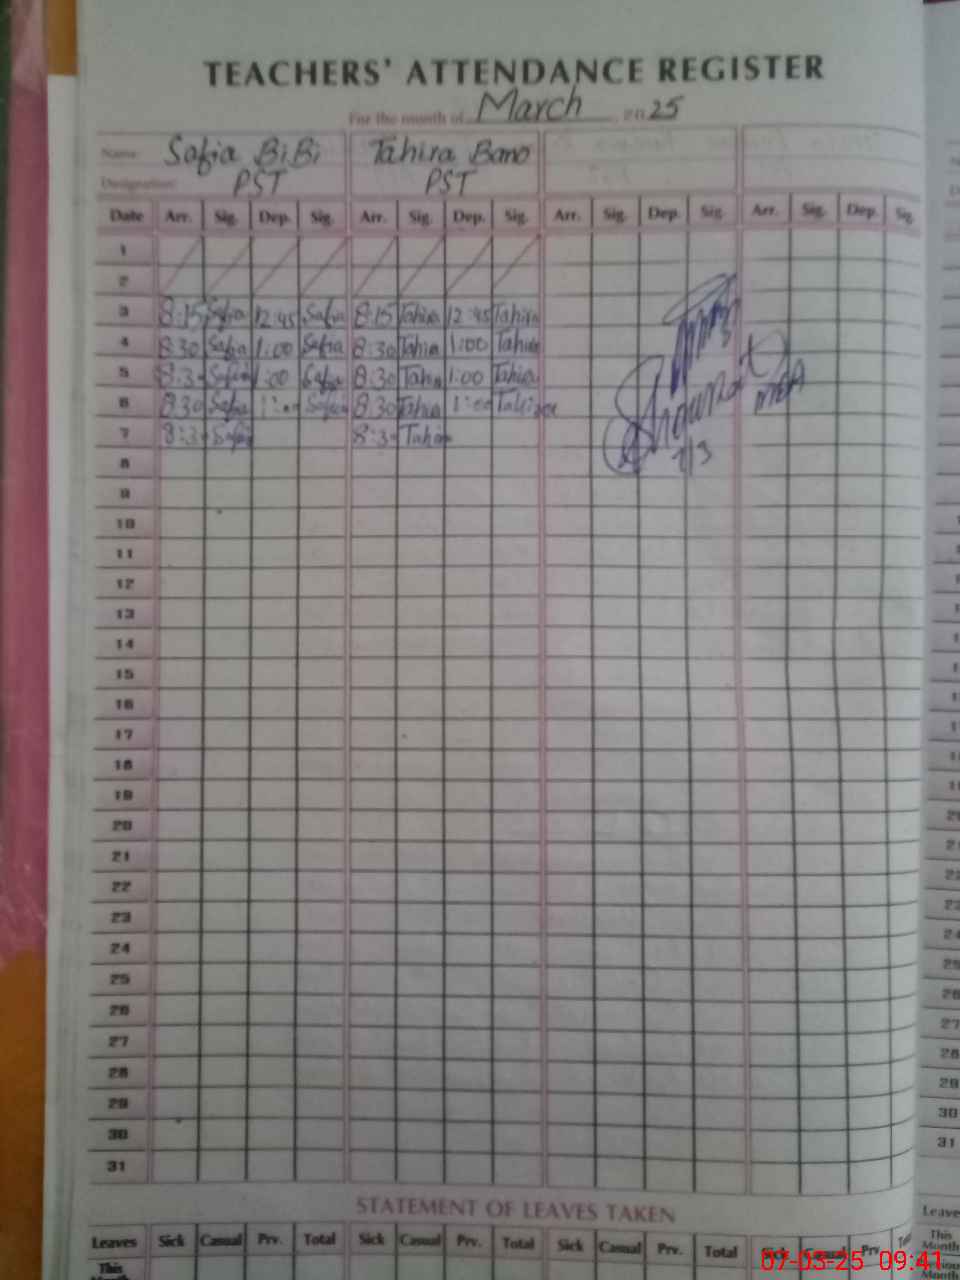 TEACHERS' ATTENDANCE REGISTER
For the month of March, 2025
Name: Safia BiBi Tahira Bano
Designation: PST PST
Date Arr. Sig. Dep. Sig. Arr. Sig. Dep. Sig. Arr. Sig. Dep. Sig. Arr. Sig. Dep. Sig.
1
2
3 8:15 Safia 12:45 Safia 8:15 Tahira 12:45 Tahira
4 8:30 Safia 1:00 Safia 8:30 Tahira 1:00 Tahira
5 8:30 Safia 1:00 Safia 8:30 Tahira 1:00 Tahira
6 8:30 Safia 1:00 Safia 8:30 Tahira 1:00 Tahira
7 8:30 Safia 8:30 Tahira
MEA
7/3
8
9
10
11
12
13
14
15
16
17
18
19
20
21
22
23
24
25
26
27
28
29
30
31
STATEMENT OF LEAVES TAKEN
Leaves Sick Casual Prv. Total Sick Casual Prv. Total Sick Casual Prv. Total Sick Casual Prv.
This
Month
07-03-25 09:41